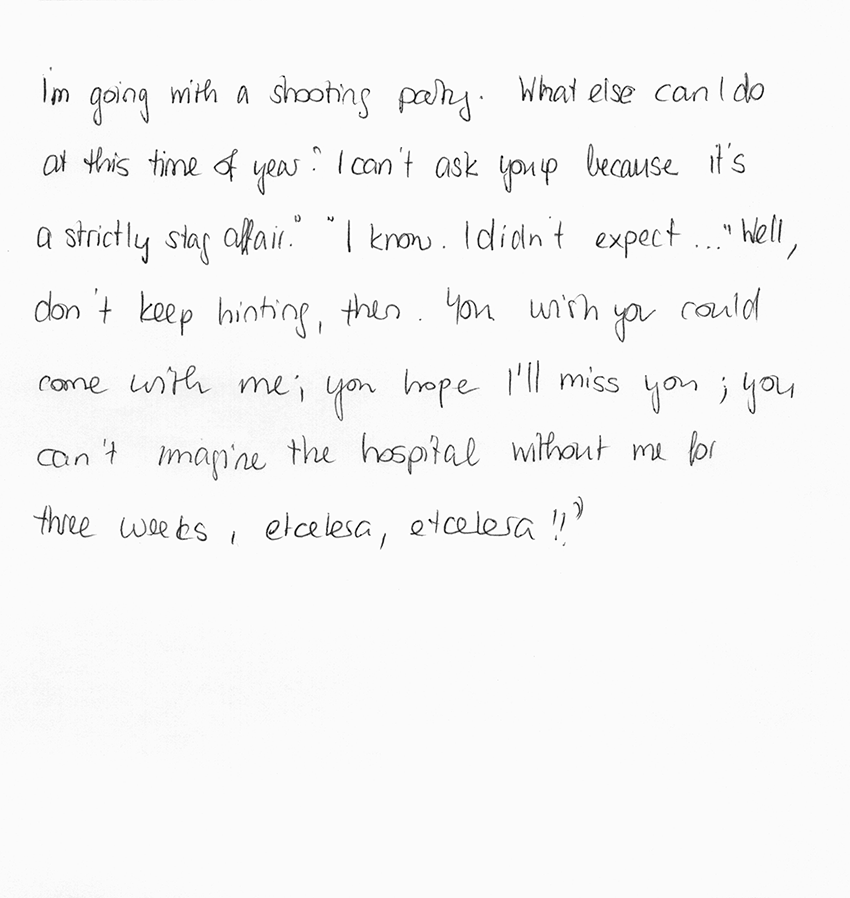 I'm going with a shooting party. What else can I do
at this time of year? I can't ask you up because it's
a strictly stag affair." "I know. I didn't expect ..." Well,
don't keep hinting, then. You wish you could
come with me; you hope I'll miss you; you
can't imagine the hospital without me for
three weeks, etcetera, etcetera!!"